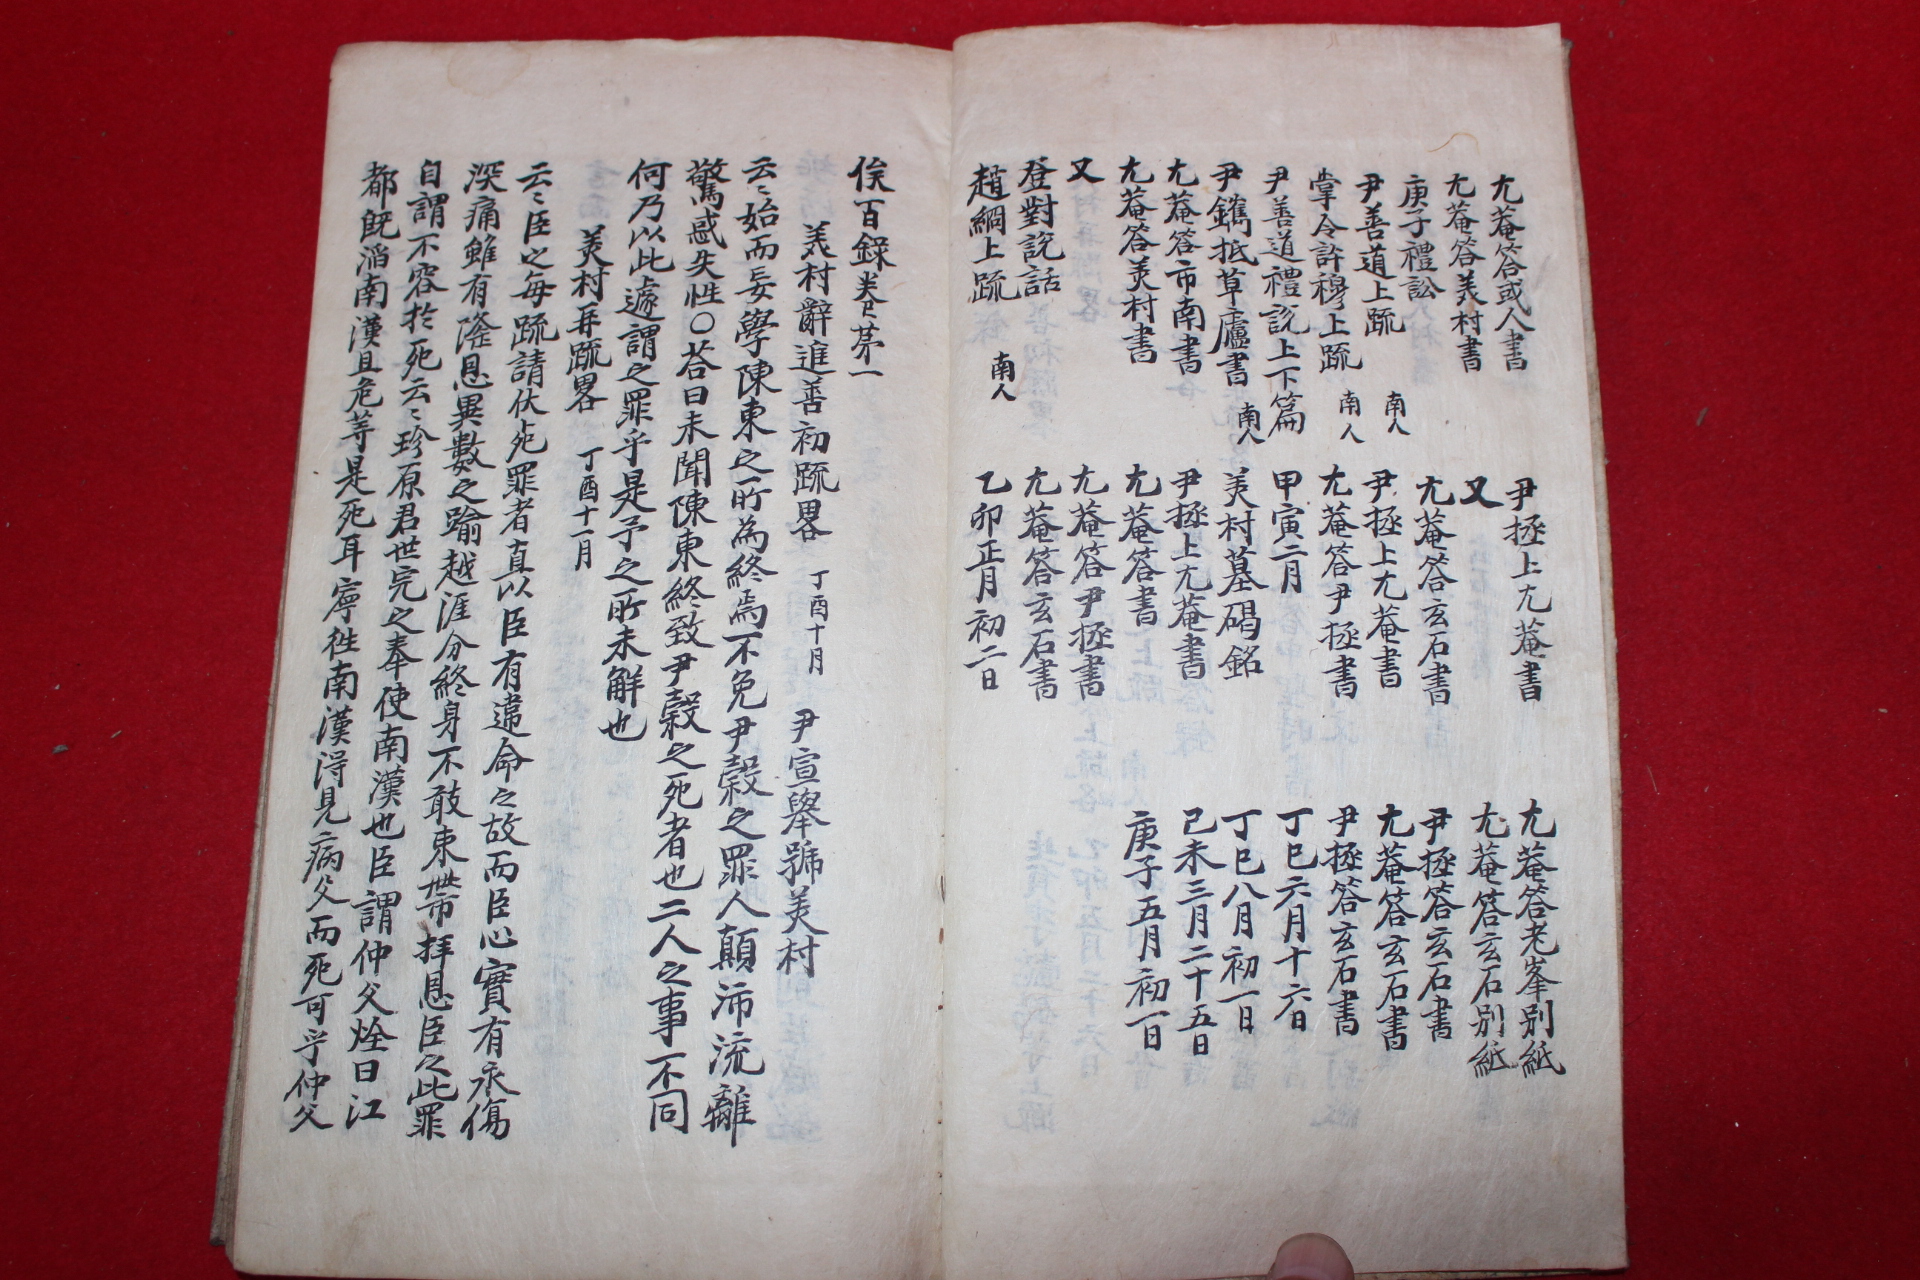 尤菴答或人書
尤菴答美村書
庚子禮訟
尹善道上疏 南人
掌令許穆上疏 南人
尹善道禮說上下篇
尹鑴抵草廬書 南人
尤菴答市南書
尤菴答美村書
又
登對說話
趙絅上疏 南人
尹拯上尤菴書
又
尤菴答玄石書
尹拯上尤菴書
尤菴答尹拯書
甲寅二月
美村墓碣銘
尹拯上尤菴書
尤菴答書
尤菴答尹拯書
尤菴答玄石書
乙卯正月初二日
尤菴答老峯別紙
尤菴答玄石別紙
尹拯答玄石書
尤菴答玄石書
尹拯答玄石書
丁巳六月十六日
丁巳八月初一日
己未三月二十五日
庚子五月初一日
俟百錄卷之第一
美村辭進善初疏畧 丁酉十月 尹宣擧號美村
云〻始而妄學陳東之所為終焉不免尹糓之罪人顛沛流離
驚惑失性〇答曰未聞陳東終致尹糓之死者也二人之事不同
何乃以此遽謂之罪乎是予之所未解也
美村再疏畧 丁酉十一月
云〻臣之每疏請伏死罪者直以臣有違命之故而臣心實有永傷
深痛雖有隆恩異數之踰越涯分終身不敢束帶拜恩臣之此罪
自謂不容於死云〻珍原君世完之奉使南漢也臣謂仲父烇曰江
都旣滔南漢且危等是死耳寧徃南漢得見病父而死可乎仲父